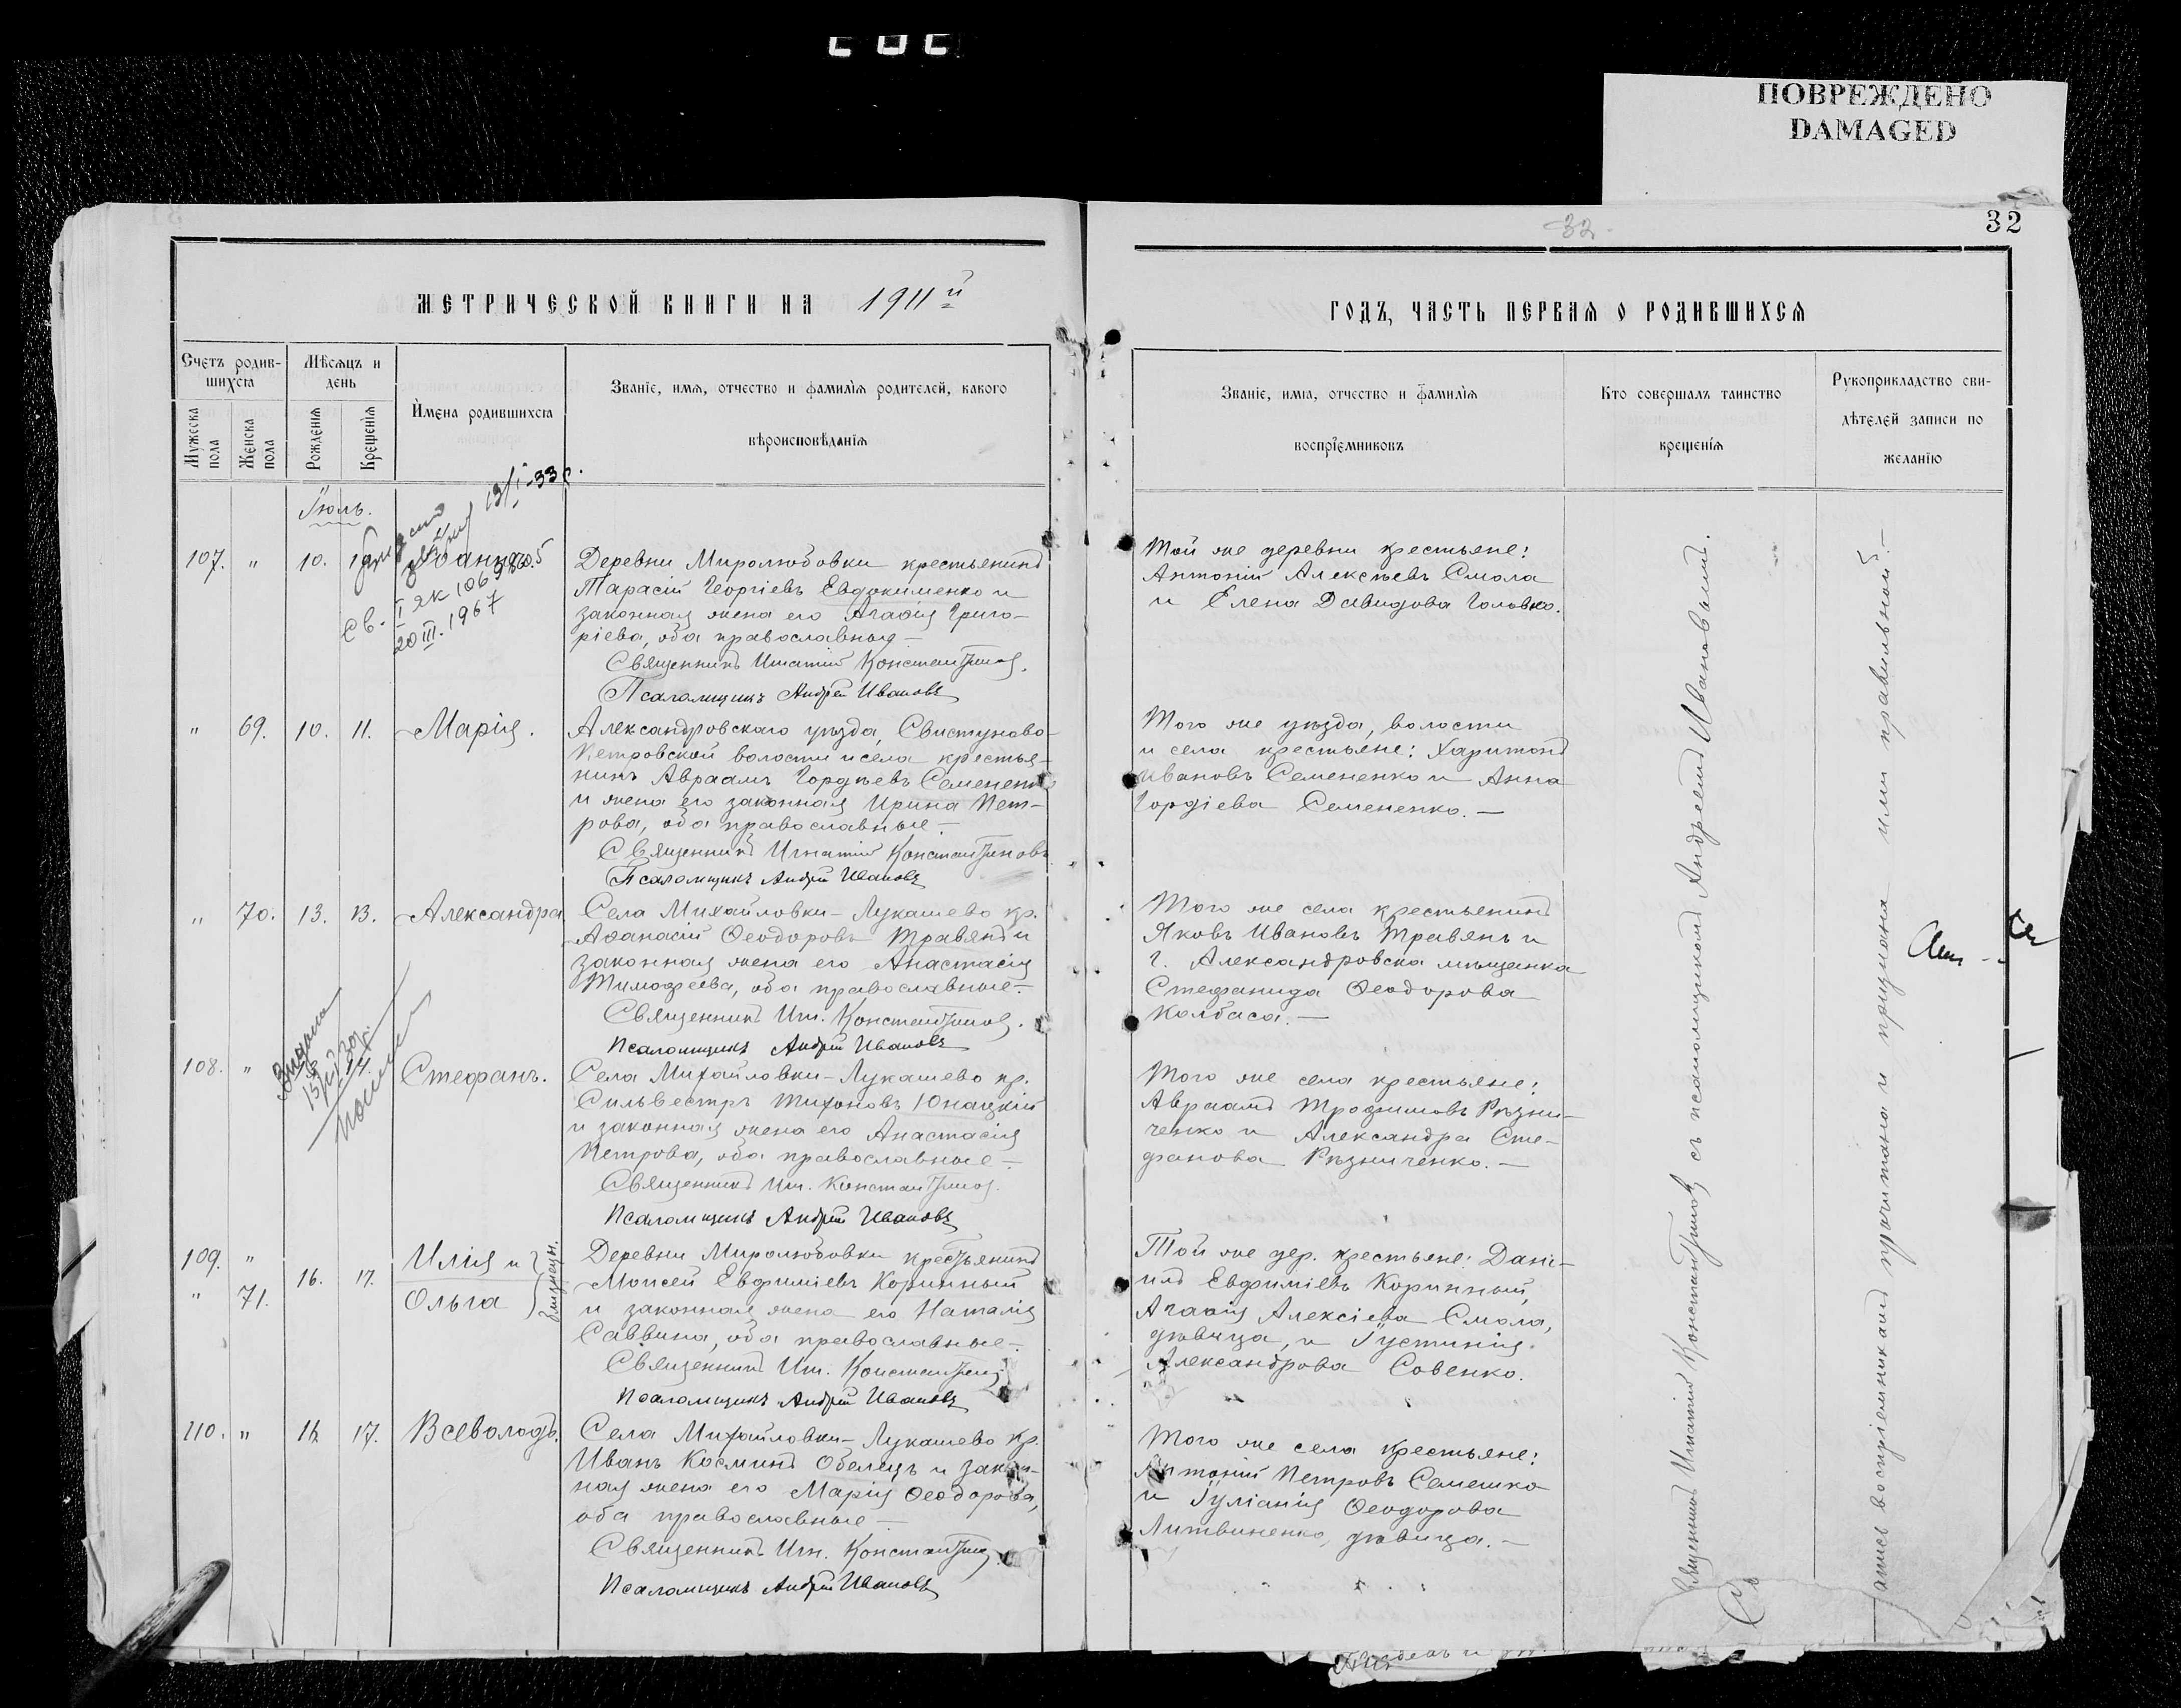 ПОВРЕЖДЕНО
DAMAGED
32
32
МЕТРИЧЕСКОЙ КНИГИ НА 1911й
Счетъ родив-
шихся
Мужеска
пола
Женска
пола
Мѣсяцъ и
день
Рожденія
Крещенія
Имена родившихся
Званіе, имя, отчество и фамилія родителей, какого
вѣроисповѣданія
Іюль.
13/I-33 г.
107. " 10.
Св. I ЯК 106
20 III. 1967
Деревни Миролюбовки крестьянинъ
Тарасій Георгіевъ Евдокименко и
законная жена его Агаѳія Григо-
ріева, оба православныя
Священникъ Игнатій Константиновъ.
Псаломщикъ Андрей Ивановъ
" 69. 10. 11. Марія.
Александровскаго уѣзда, Свистуново-
Петровской волости и села крестья-
нинъ Авраамъ Гордѣевъ Семененко
и жена его законная Ирина Пет-
рова, оба православные.
Священникъ Игнатій Константиновъ
Псаломщикъ Андрей Ивановъ
" 70. 13. 13. Александра
Села Михайловки-Лукашево кр.
Аѳанасій Ѳеодоровъ Травянъ и
законная жена его Анастасія
Тимофеева, оба православные.
Священникъ Игн. Константиновъ.
Псаломщикъ Андрей Ивановъ
108. " Стефанъ.
Села Михайловки-Лукашево кр.
Сильвестръ Тихоновъ Юнацкій
и законная жена его Анастасія
Петрова, оба православные.
Священникъ Игн. Константиновъ.
Псаломщикъ Андрей Ивановъ
109. " Илія и
" 71. 16. 17. Ольга близнец.
Деревни Миролюбовки крестьянинъ
Моисей Евфиміевъ Коринный
и законная жена его Наталія
Саввина, оба православные.
Священникъ Игн. Константиновъ
Псаломщикъ Андрей Ивановъ
110. " 16. 17. Всеволодъ.
Села Михайловки-Лукашево кр.
Иванъ Косминъ Обелецъ и закон-
ная жена его Марія Ѳеодорова,
оба православные
Священникъ Игн. Константиновъ
Псаломщикъ Андрей Ивановъ
ГОДЪ, ЧАСТЬ ПЕРВАЯ О РОДИВШИХСЯ
Званіе, имя, отчество и фамилія
воспріемниковъ
Кто совершалъ таинство
крещенія
Рукоприкладство сви-
дѣтелей записи по
желанію
Той же деревни крестьяне:
Антоній Алексѣевъ Смола
и Елена Давидова Головко.
Того же уѣзда, волости
и села крестьяне: Харитонъ
Ивановъ Семененко и Анна
Гордіева Семененко.—
Того же села крестьянинъ
Яковъ Ивановъ Травянъ и
г. Александровска мѣщанка
Стефанида Ѳеодорова
Колбаса.—
Того же села крестьяне:
Авраамъ Трофимовъ Рѣзни-
ченко и Александра Сте-
фанова Рѣзниченко.—
Той же дер. крестьяне: Дані-
илъ Евфиміевъ Коринный,
Агаѳія Алексіева Смола,
дѣвица, и Іустинія
Александрова Совенко.
Того же села крестьяне:
Антоній Петровъ Семешко
и Іуліанія Ѳеодорова
Литвиненко, дѣвица.—
Священникъ Игнатій Константиновъ съ псаломщикомъ Андреемъ Ивановымъ.
воспріемниками прочитана и признана ими правильной.—